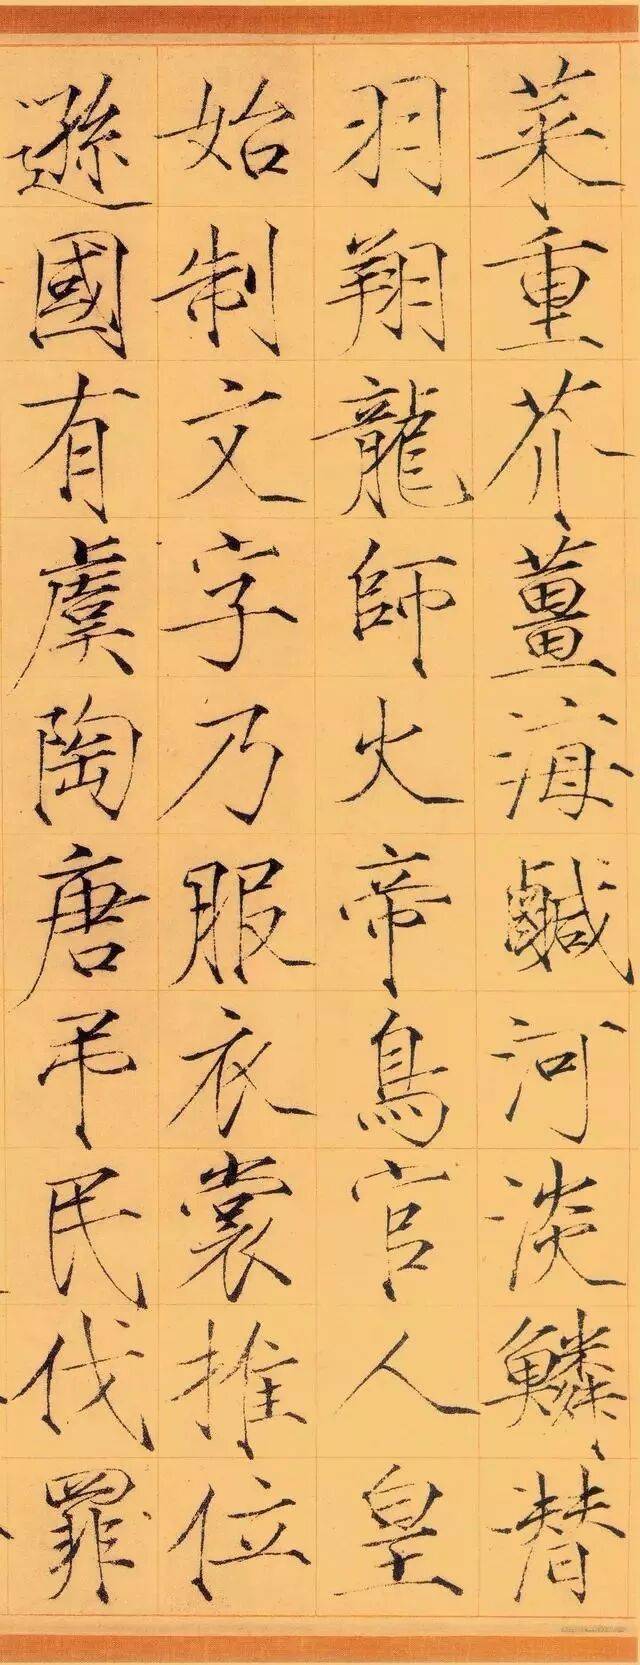 菜重芥薑海鹹河淡鱗潜
羽翔龍師火帝鳥官人皇
始制文字乃服衣裳推位
遜國有虞陶唐弔民伐罪